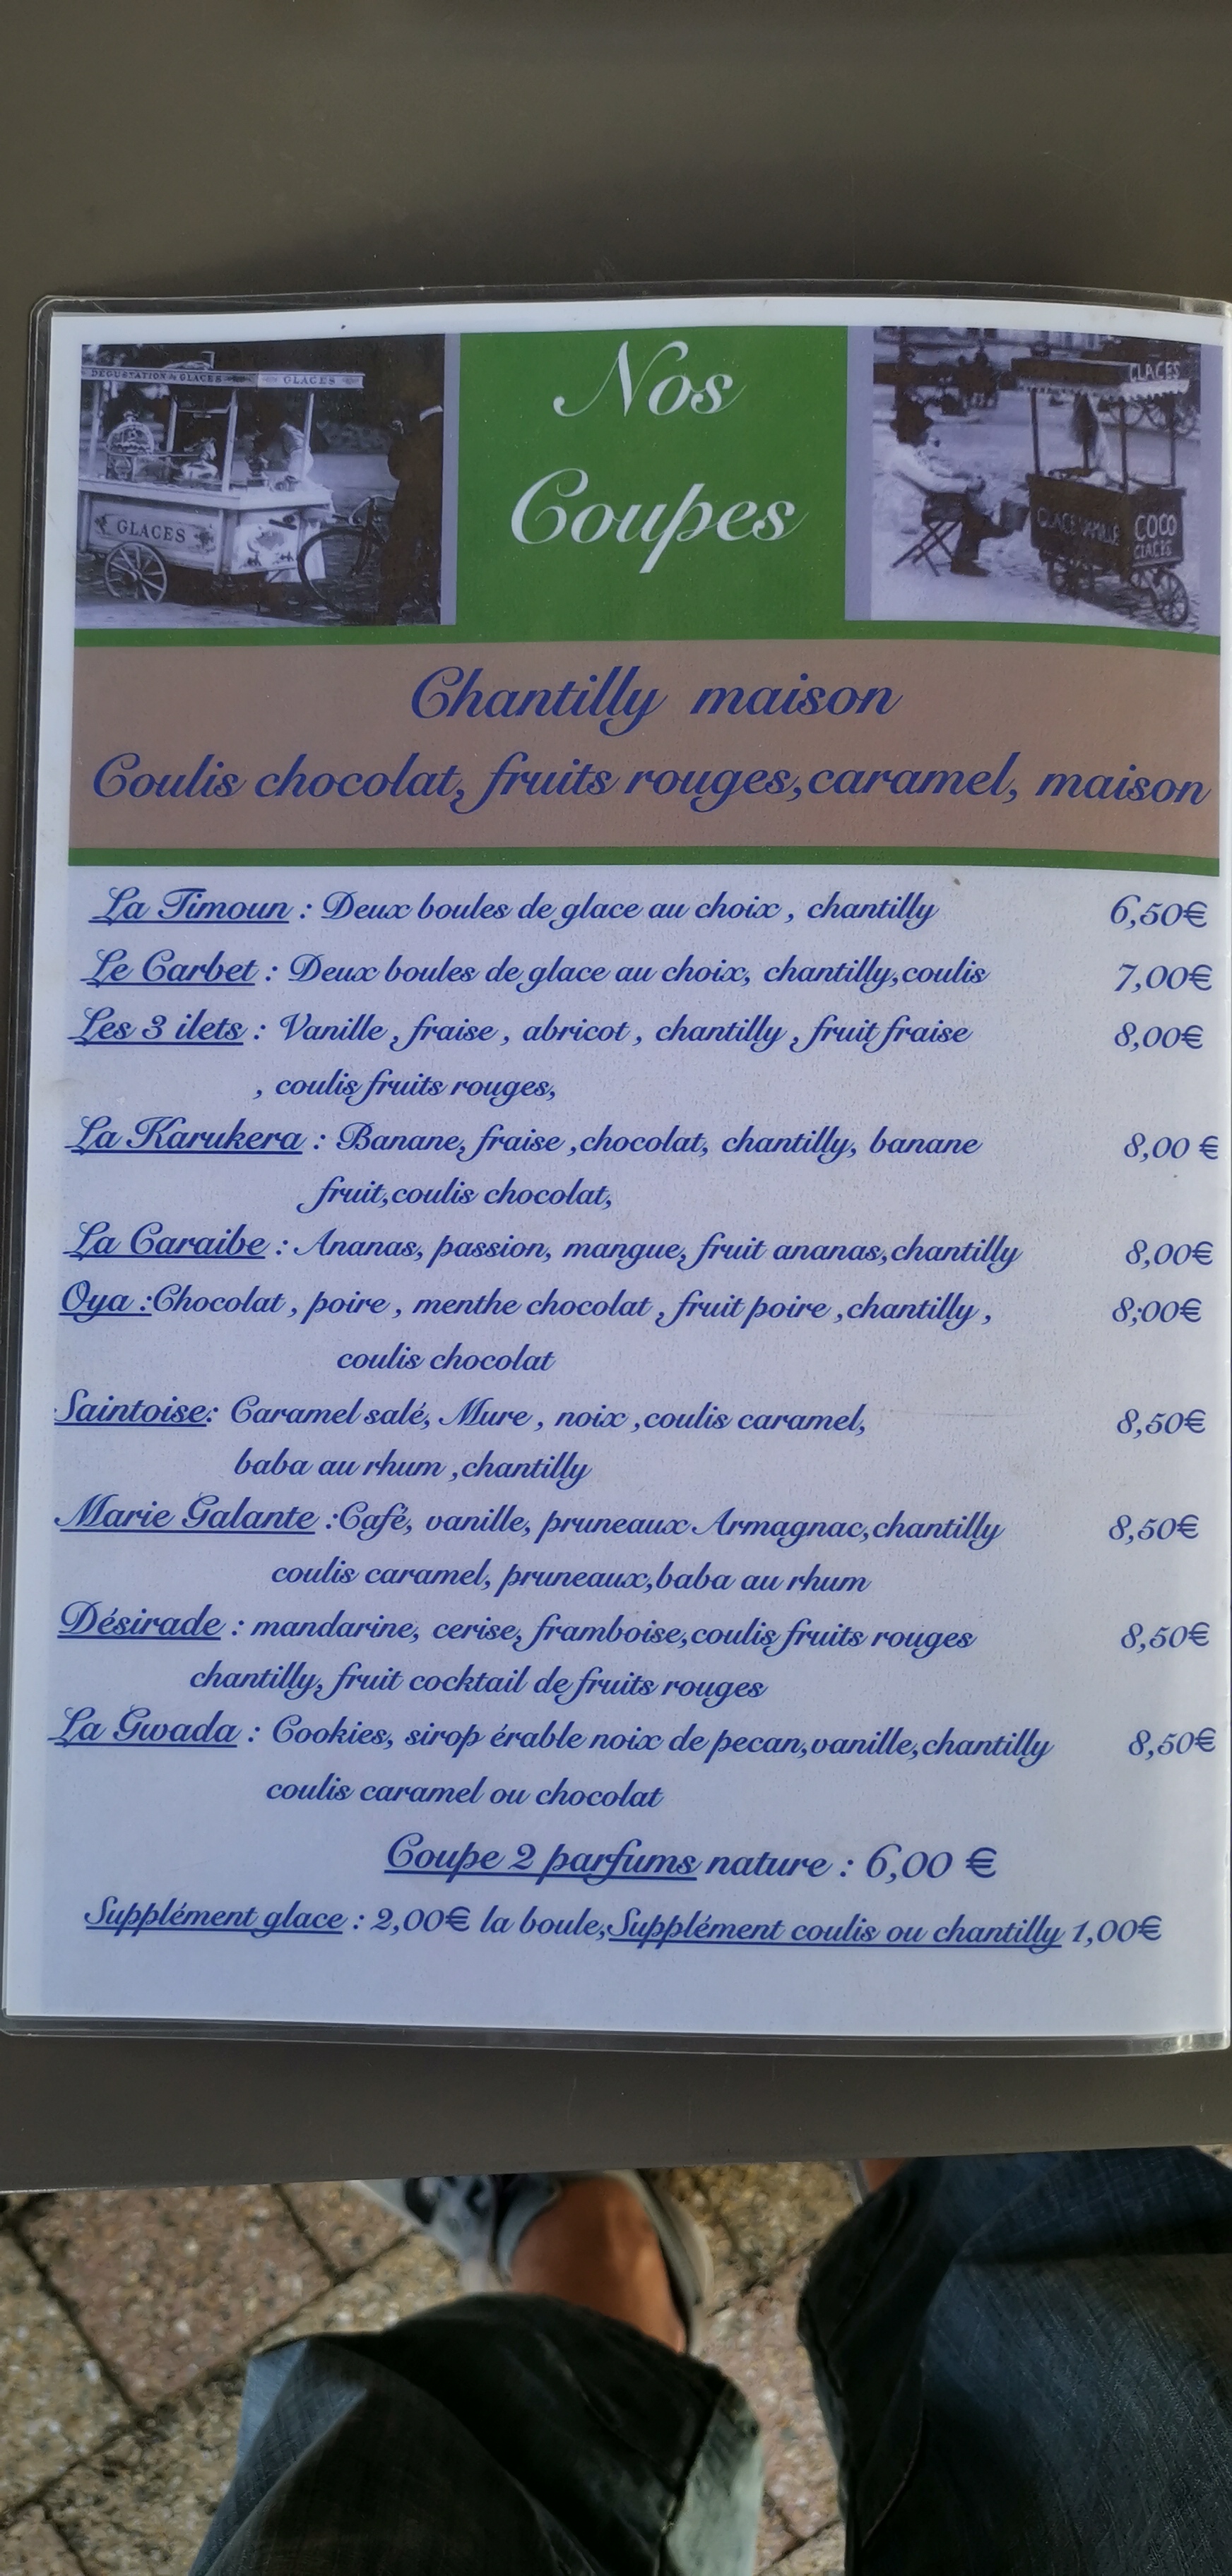 DEGUSTATION de GLACES GLACES
GLACES
Nos
Coupes
GLACES
GLACE VANILLE
COCO
GLACES
Chantilly maison
Coulis chocolat, fruits rouges,caramel, maison
La Timoun : Deux boules de glace au choix , chantilly 6,50€
Le Carbet : Deux boules de glace au choix, chantilly,coulis 7,00€
Les 3 ilets : Vanille , fraise , abricot , chantilly , fruit fraise 8,00€
, coulis fruits rouges,
La Karukera : Banane, fraise ,chocolat, chantilly, banane 8,00 €
fruit,coulis chocolat,
La Caraibe : Ananas, passion, mangue, fruit ananas,chantilly 8,00€
Oya :Chocolat , poire , menthe chocolat , fruit poire ,chantilly , 8;00€
coulis chocolat
Saintoise: Caramel salé, Mure , noix ,coulis caramel, 8,50€
baba au rhum ,chantilly
Marie Galante :Café, vanille, pruneaux Armagnac,chantilly 8,50€
coulis caramel, pruneaux,baba au rhum
Désirade : mandarine, cerise, framboise,coulis fruits rouges 8,50€
chantilly, fruit cocktail de fruits rouges
La Gwada : Cookies, sirop érable noix de pecan,vanille,chantilly 8,50€
coulis caramel ou chocolat
Coupe 2 parfums nature : 6,00 €
Supplément glace : 2,00€ la boule,Supplément coulis ou chantilly 1,00€